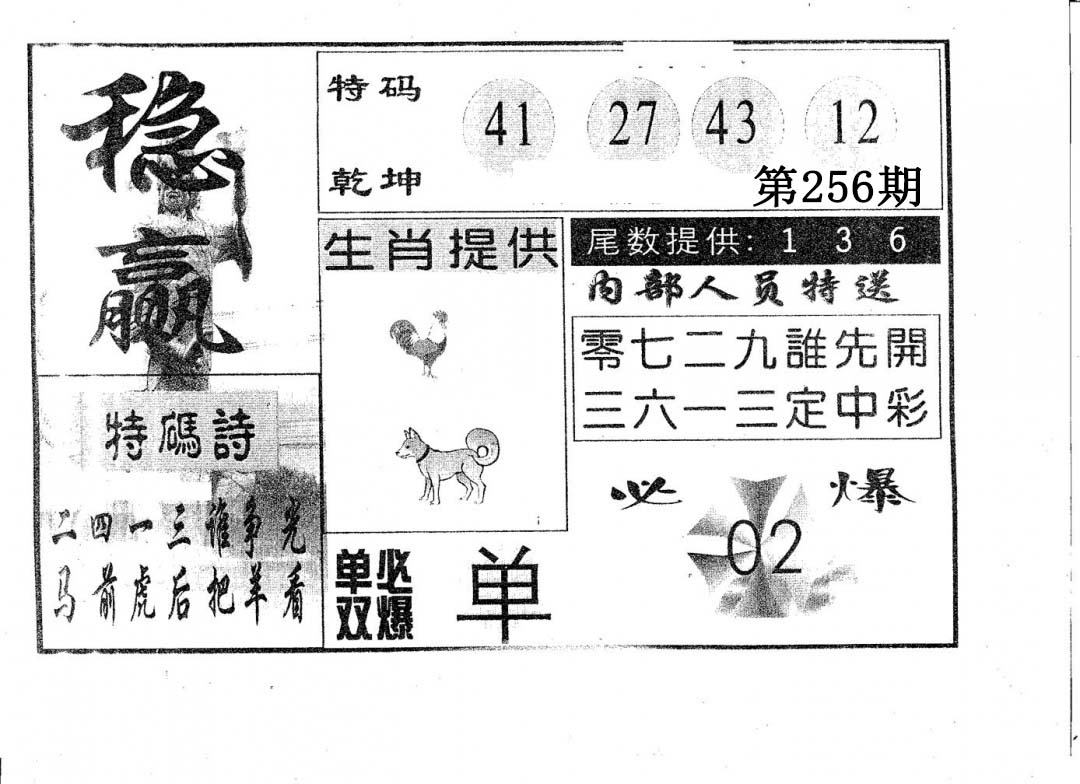 稳赢
特码
乾坤
41 27 43 12
第256期
生肖提供
尾数提供: 1 3 6
内部人员特送
零七二九誰先開
三六一三定中彩
特碼詩
二四一三谁争光
马前虎后把羊看
单双必爆
单
必爆
02